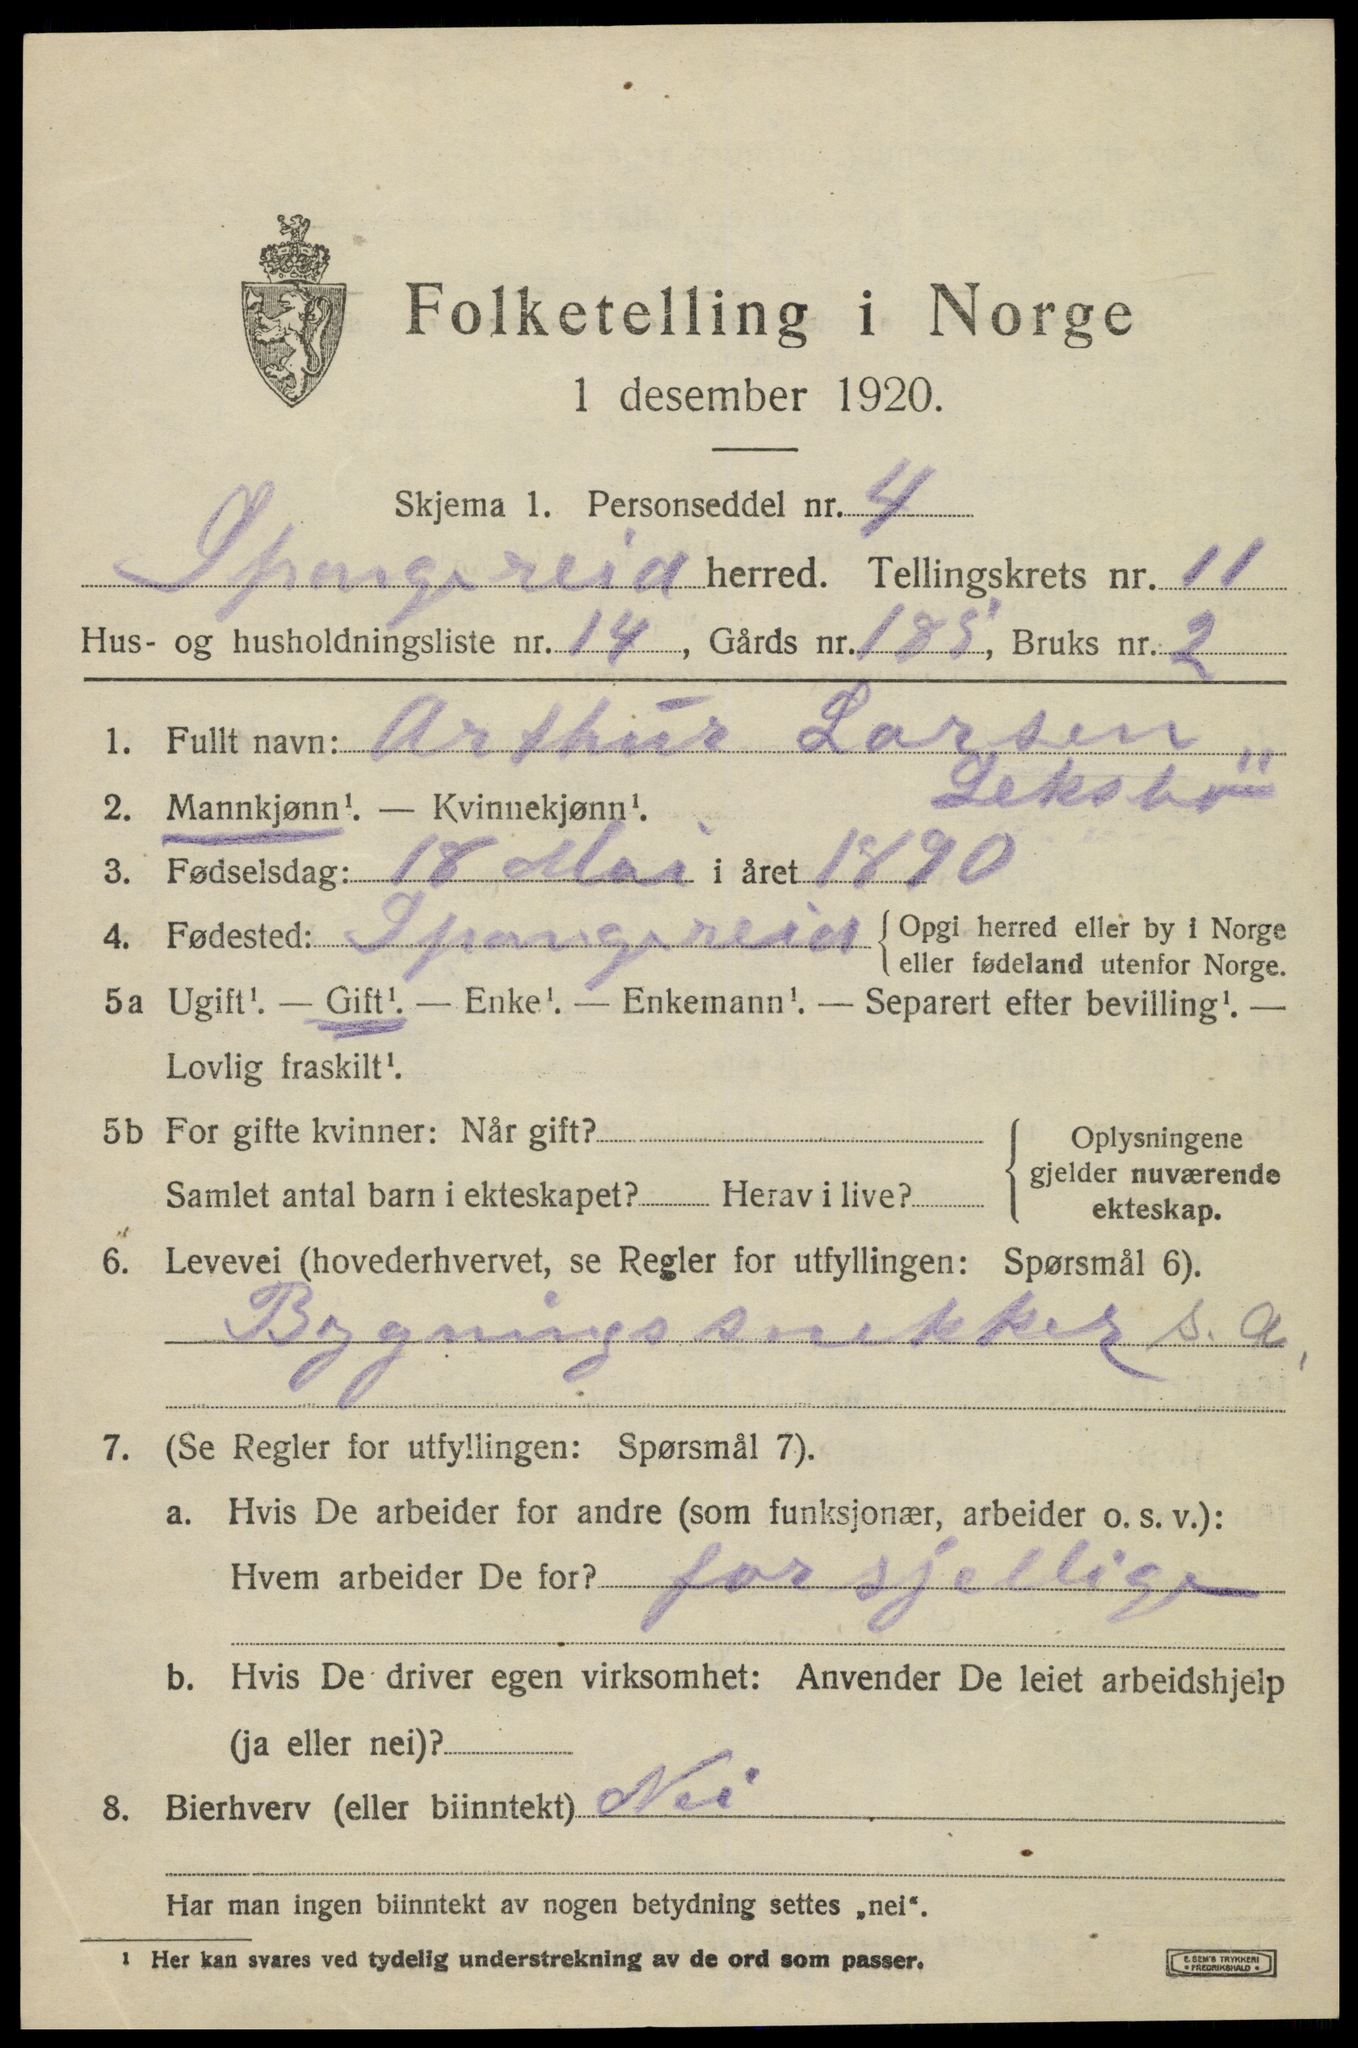 Folketelling i Norge
1 desember 1920.
Skjema 1. Personseddel nr. 4
Spangereid herred. Tellingskrets nr. 11
Hus- og husholdningsliste nr. 14, Gårds nr. 185, Bruks nr. 2
1. Fullt navn: Arthur Larsen
2. Mannkjønn¹. — Kvinnekjønn¹.
3. Fødselsdag: 18 Mai i året 1890
4. Fødested: Spangereid {Opgi herred eller by i Norge
eller fødeland utenfor Norge.
5a Ugift¹. — Gift¹. — Enke¹. — Enkemann¹. — Separert efter bevilling¹. —
Lovlig fraskilt¹.
5b For gifte kvinner: Når gift?
Samlet antal barn i ekteskapet? Herav i live?
{Oplysningene
gjelder nuværende
ekteskap.
6. Levevei (hovederhvervet, se Regler for utfyllingen: Spørsmål 6).
Bygningssnekker s. a,
7. (Se Regler for utfyllingen: Spørsmål 7).
a. Hvis De arbeider for andre (som funksjonær, arbeider o. s. v.):
Hvem arbeider De for? forsjellige
b. Hvis De driver egen virksomhet: Anvender De leiet arbeidshjelp
(ja eller nei)?
8. Bierhverv (eller biinntekt) Nei
Har man ingen biinntekt av nogen betydning settes „nei“.
¹ Her kan svares ved tydelig understrekning av de ord som passer.
E. SEM'S TRYKKERI
• FREDRIKSHALD •